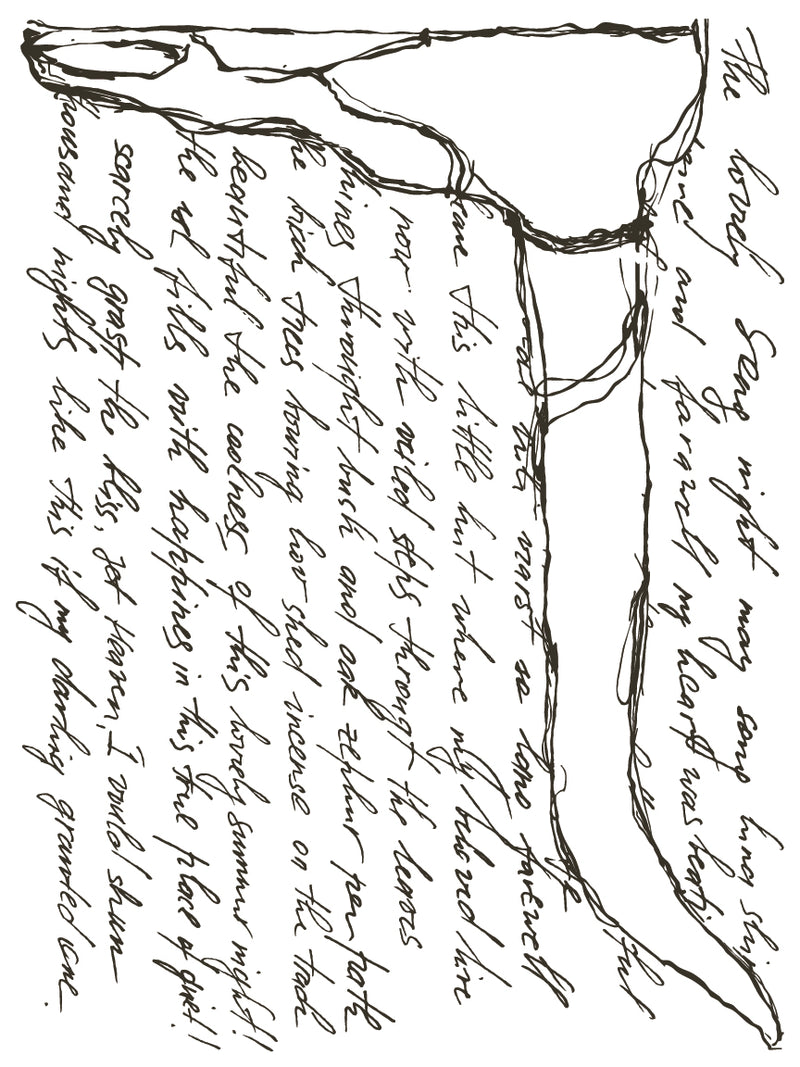 The lovely Song night may song luna ship
and farwell my heart was beati
ful
out but so long farewell
this little hut where my beloved live
now with veiled steps througt the leaves
hines throught bush and oak zephur per path
he birch trees bowing low shed incense on the track
beautiful the coolness of this lovely summer night!
the sol fills with happines in this true place of quiet!
scarcely grast the bliss, yet Heaven, I would shun
housand nights like this if my darling granted one.